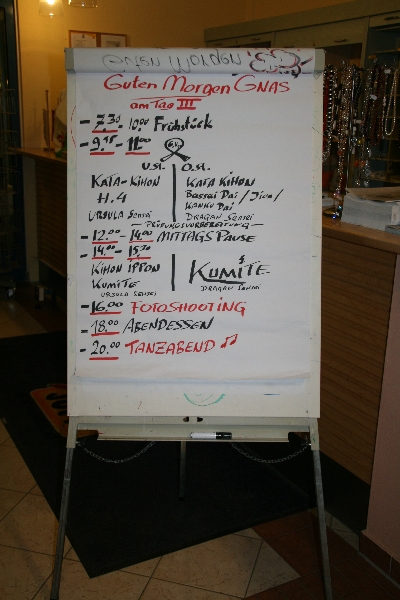 Guten Morgen GNAS
am Tag III
- 7.30 - 10.00 Frühstück
- 9.15 - 11.00
U.St. O.St.
KATA-KIHON KATA KIHON
H.4 Bassai Dai / Jion /
KANKU Dai
URSULA Sensei DRAGAN Sensei
- PRÜFUNGSVORBEREITUNG -
- 12.00 - 14.00 MITTAGSPAUSE
- 14.00 - 15.30
KIHON IPPON KUMITE
KUMITE DRAGAN Sensei
URSULA SENSEI
- 16.00 FOTOSHOOTING
- 18.00 ABENDESSEN
- 20.00 TANZABEND